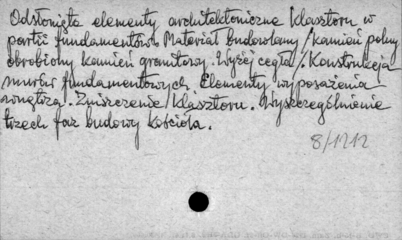 Odsłonięto elementy architektoniczne klasztoru w
partii fundamentów. Materiał budowlany / kamień polny
obrobiony kamień granitowy. Wyżej cegła /. Konstrukcja
murów fundamentowych. Elementy wyposażenia
wnętrza. Zniszczenie klasztoru. Wyszczególnienie
trzech faz budowy kościoła.
8/1212